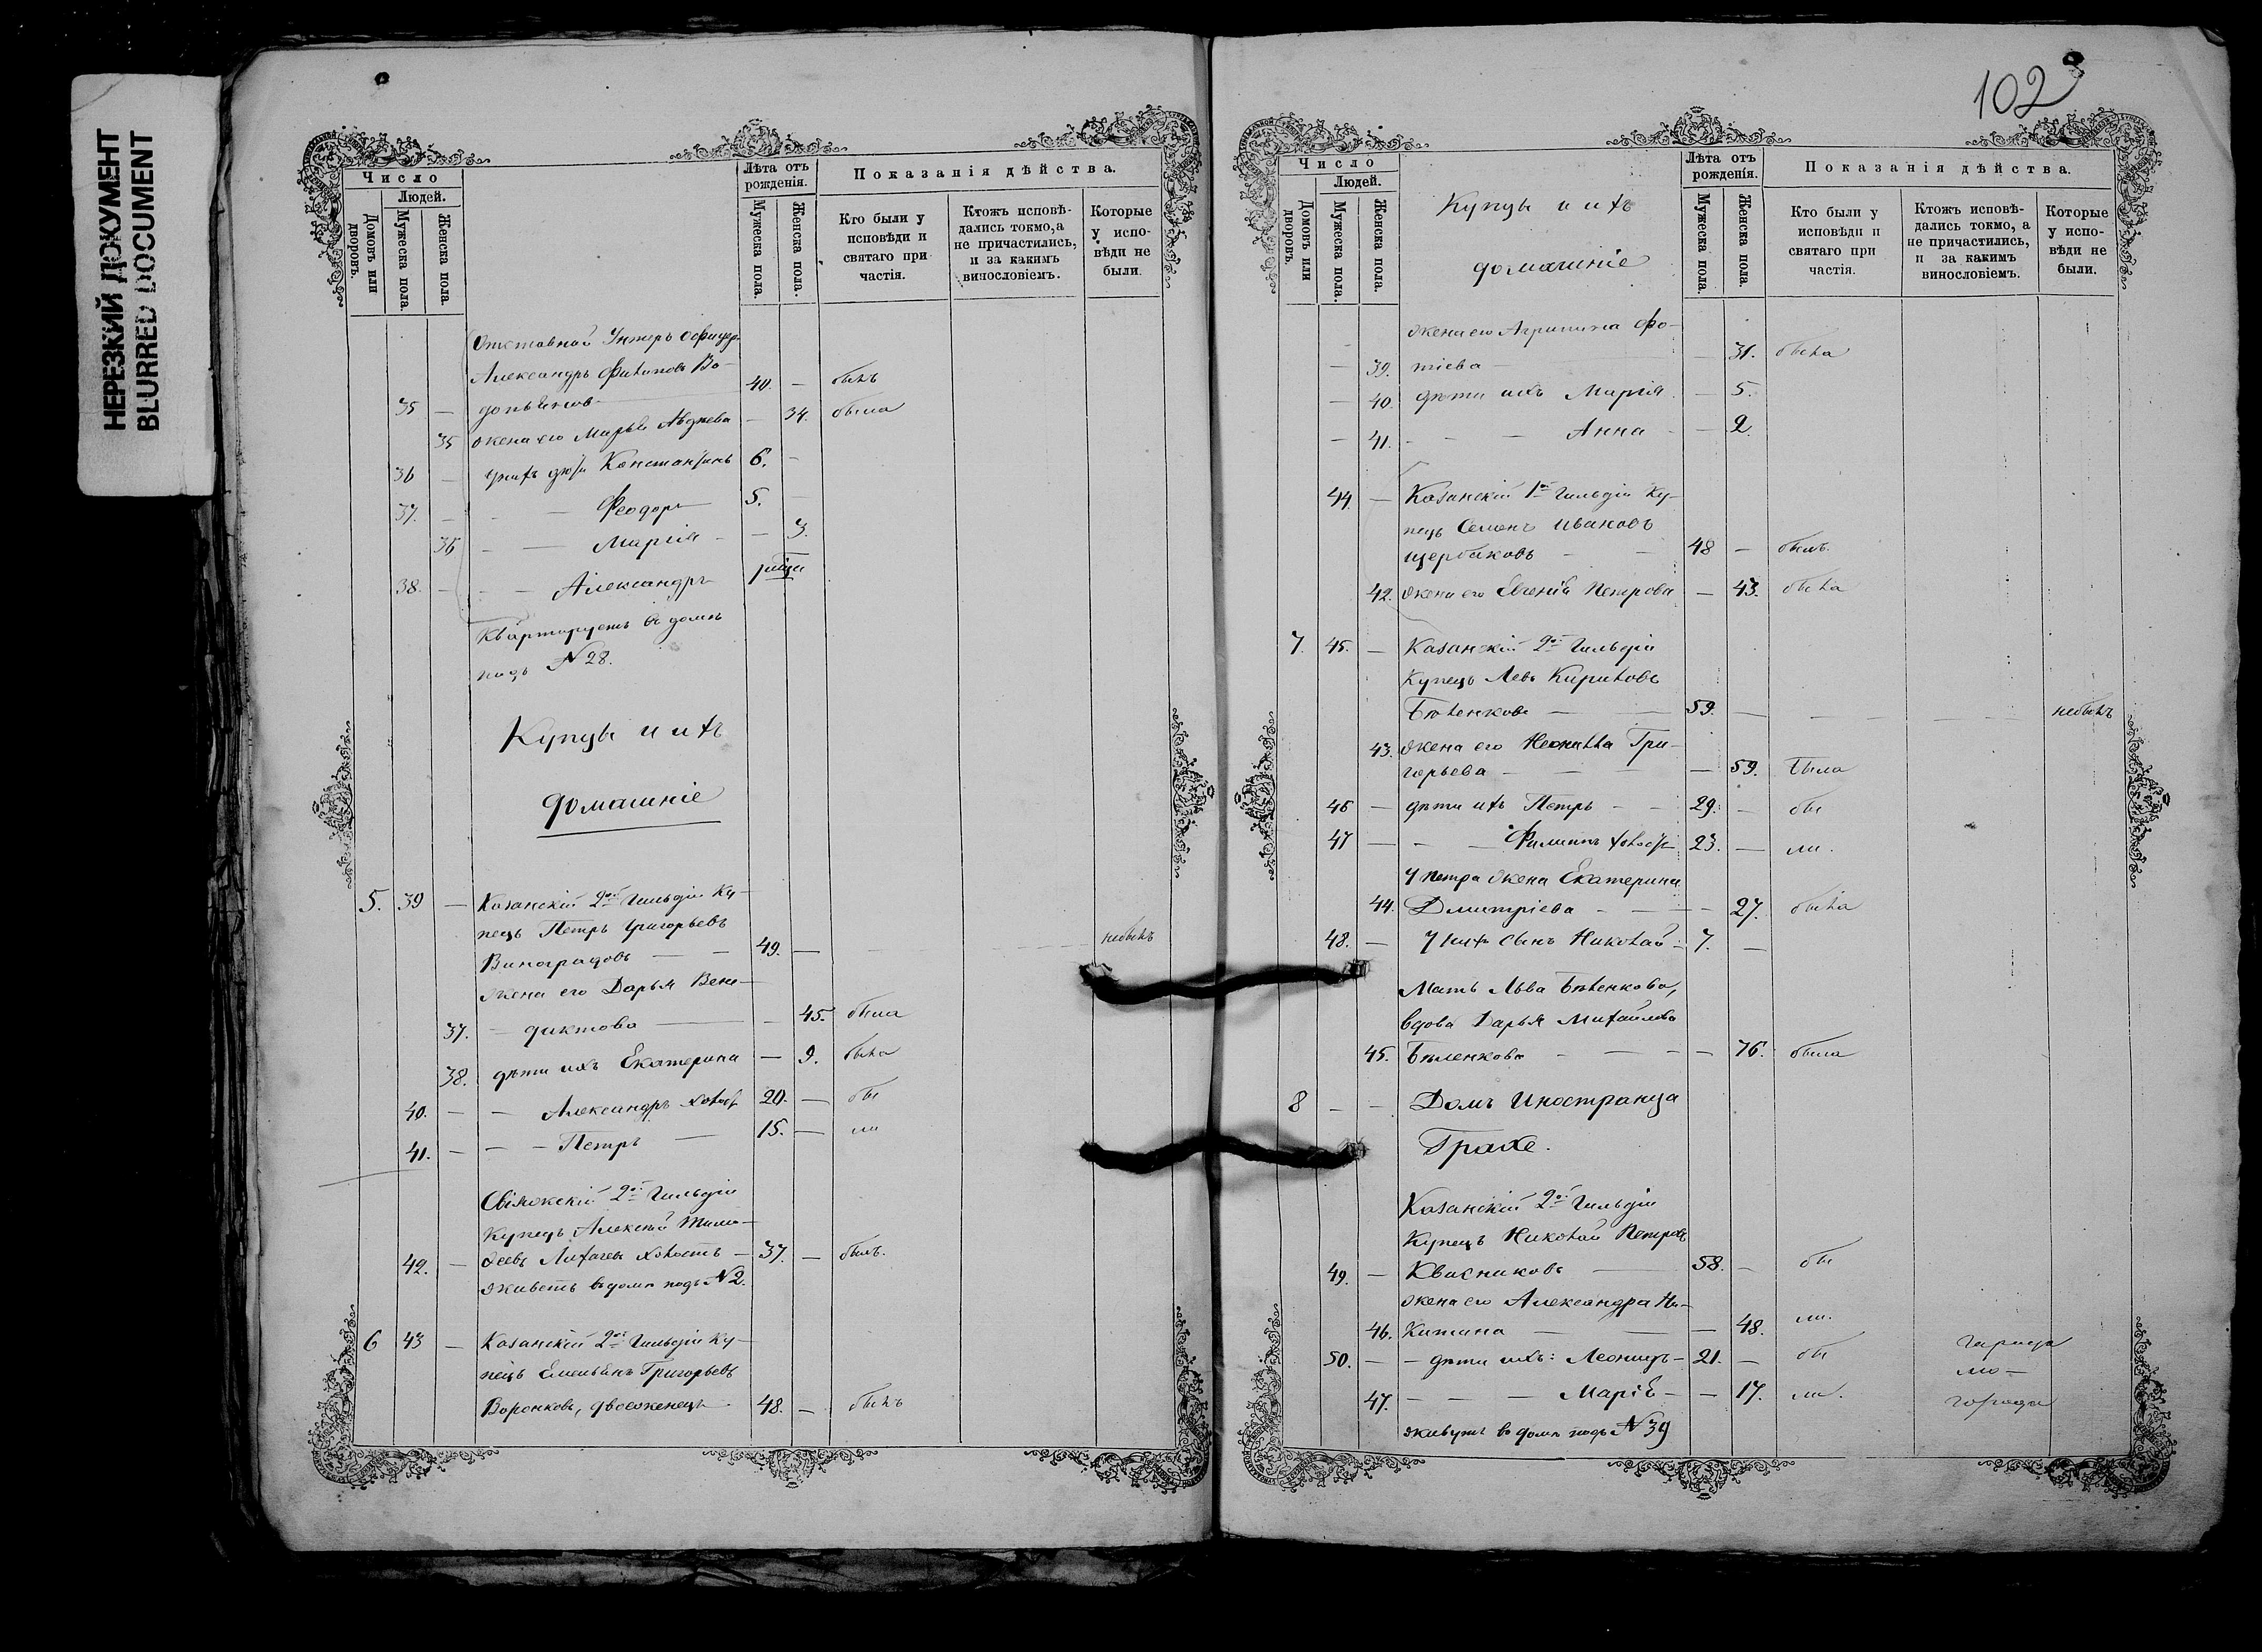 НЕРЕЗКИЙ ДОКУМЕНТ
BLURRED DOCUMENT
Число
Людей.
Домовъ или дворовъ.
Мужеска пола.
Женска пола.
Лѣта отъ рожденія.
Мужеска пола.
Женска пола.
Показанія дѣйства.
Кто были у исповѣди и святаго причастія.
Ктожъ исповѣдались токмо, а не причастились, и за какимъ винословіемъ.
Которые у исповѣди не были.
Отставной Унтеръ Офицеръ
Александръ Филиповъ Во-
35 — 40. — былъ
35 жена его Марья Авдѣева — 34. была
36 — у нихъ дѣти Константинъ 6. —
37. — — — Феодоръ 5. —
36 — — Марія — — 3.
38. — — — Александръ
Квартируетъ въ домѣ
подъ № 28.
Купцы и ихъ
домашніе
5. 39 — Казанскій 2ой Гильдіи Ку-
пецъ Петръ Григорьевъ
Виноградовъ — — 49. — небылъ
жена его Дарья Вене-
37. — диктова — — 45. была
38. дѣти ихъ Екатерина — 9. была
40. — — Александръ холост 20. — бы
41. — — — Петръ — 15. — ли
Свіяжскій 2ой Гильдіи
Купецъ Алексѣй Тимо-
42. — ѳеевъ Лихачевъ холостъ — 37. — былъ.
живетъ въ домѣ подъ № 2.
6 43 — Казанскій 2ой Гильдіи Ку-
пецъ Емельянъ Григорьевъ
Воронковъ, двоеженецъ 48. — былъ
102
Число
Людей.
Домовъ или дворовъ.
Мужеска пола.
Женска пола.
Купцы и ихъ
домашніе
Лѣта отъ рожденія.
Мужеска пола.
Женска пола.
Показанія дѣйства.
Кто были у исповѣди и святаго причастія.
Ктожъ исповѣдались токмо, а не причастились, и за какимъ винословіемъ.
Которые у исповѣди не были.
жена его Агрипина Фо-
— 39. тіева — — 31. была
— 40. дѣти ихъ Марія — 5.
— 41. — — — Анна — — 2.
44. — Казанскій 1ой Гильдіи Ку-
пецъ Семенъ Ивановъ
Щербаковъ — — 48 — былъ.
42. жена его Евгенія Петрова — 43. была
7. 45. — Казанскій 2ой Гильдіи
Купецъ Левъ Кириловъ
Бѣленковъ — — 59. — — — небылъ
43. жена его Неонилла Гри-
горьева — — — — 59. была
46 — дѣти ихъ Петръ — — 29. — бы
47 — — — Филиппъ холост 23. — ли.
У Петра жена Екатерина
44. Дмитріева — — — 27. была
48. — У нихъ сынъ Николай — 7. —
Мать Льва Бѣленкова,
вдова Дарья Михайлова
45. Бѣленкова — — — — 76. была
8 — — Домъ Иностранца
Грахе.
Казанскій 2ой Гильдіи
Купецъ Николай Петровъ
49. — Квасниковъ — 58. — бы
жена его Александра Ни-
46. китина — — — 48. ли.
50. — — дѣти ихъ: Леонидъ — 21. — бы
47. — — Марія — — 17. ли.
живутъ въ домѣ подъ № 39